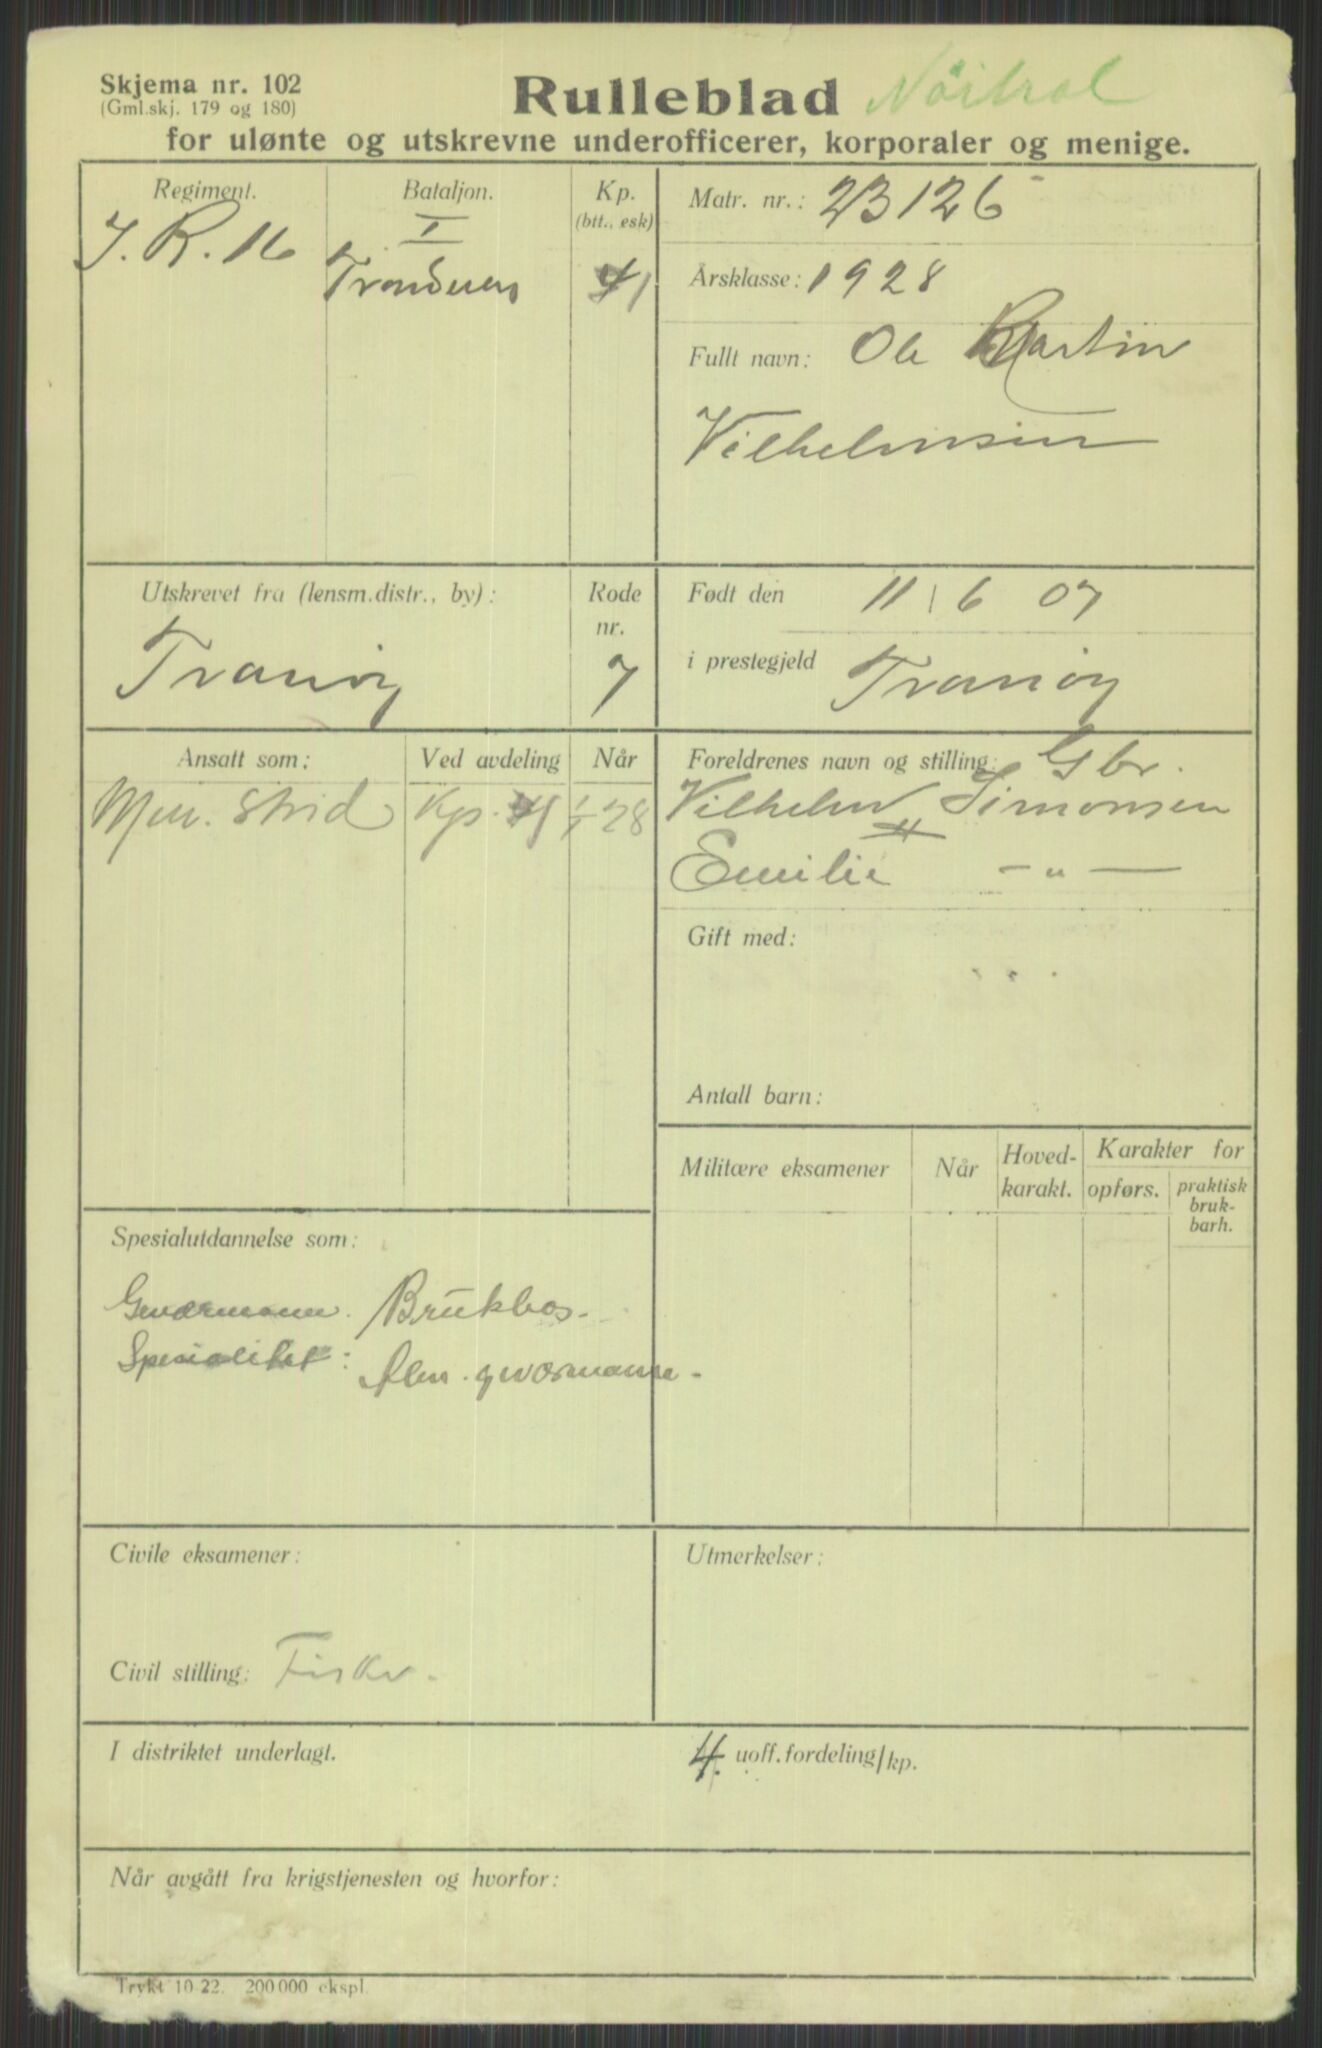 Skjema nr. 102
(Gml.skj. 179 og 180)
Rulleblad Nöitral
for ulønte og utskrevne underofficerer, korporaler og menige.
Regiment. Bataljon. Kp. (btt., esk)
I. R. 16 I Trondenes 1
Matr. nr.: 23126
Årsklasse: 1928
Fullt navn: Ole Martin
Vilhelmsen
Utskrevet fra (lensm.distr., by): Rode nr.
Tranöy 7
Født den 11/6 07
i prestegjeld Tranöy
Ansatt som: Ved avdeling Når
Men. Strid Kp. 1 1/1 28
Foreldrenes navn og stilling: Gbr.
Vilhelm Simonsen
Emilie — „ —
Gift med:
Antall barn:
Militære eksamener Når Hoved-karakt. Karakter for
opførs. praktisk bruk-barh.
Spesialutdannelse som:
Geværmann. Brukbar.
Spesialitet: Alm. geværmann.
Civile eksamener:
Utmerkelser:
Civil stilling: Fisker.
I distriktet underlagt.
4. uoff.fordeling/kp.
Når avgått fra krigstjenesten og hvorfor:
Trykt 10-22. 200 000 ekspl.